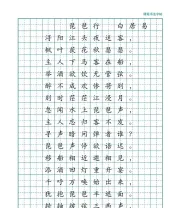 琵琶行 白居易
浔阳江头夜送客，
枫叶荻花秋瑟瑟。
主人下马客在船，
举酒欲饮无管弦。
醉不成欢惨将别，
别时茫茫江浸月。
忽闻水上琵琶声，
主人忘归客不发。
寻声暗问弹者谁？
琵琶声停欲语迟。
移船相近邀相见，
添酒回灯重开宴。
千呼万唤始出来，
犹抱琵琶半遮面。
转轴拨弦三两声，